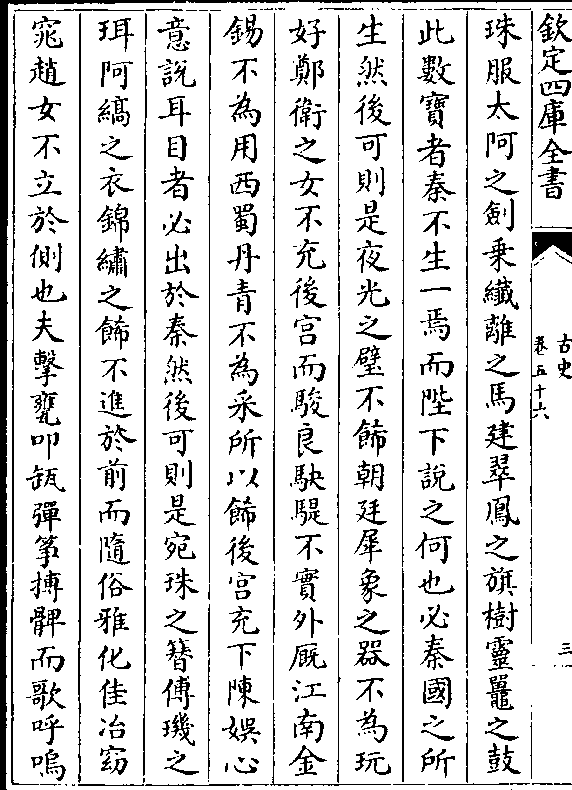 欽定四庫全書
古史
卷五十六
三
珠服太阿之劍乗纎離之馬建翠鳳之旗樹靈鼉之鼓
此數寶者秦不生一焉而陛下說之何也必秦國之所
生然後可則是夜光之璧不飾朝廷犀象之器不為玩
好鄭衛之女不充後宫而駿良駃騠不實外厩江南金
錫不為用西蜀丹青不為采所以飾後宫充下陳娯心
意說耳目者必出於秦然後可則是宛珠之簪傅璣之
珥阿縞之衣錦繡之飾不進於前而隨俗雅化佳冶窈
窕趙女不立於側也夫擊甕叩缻彈筝搏髀而歌呼嗚